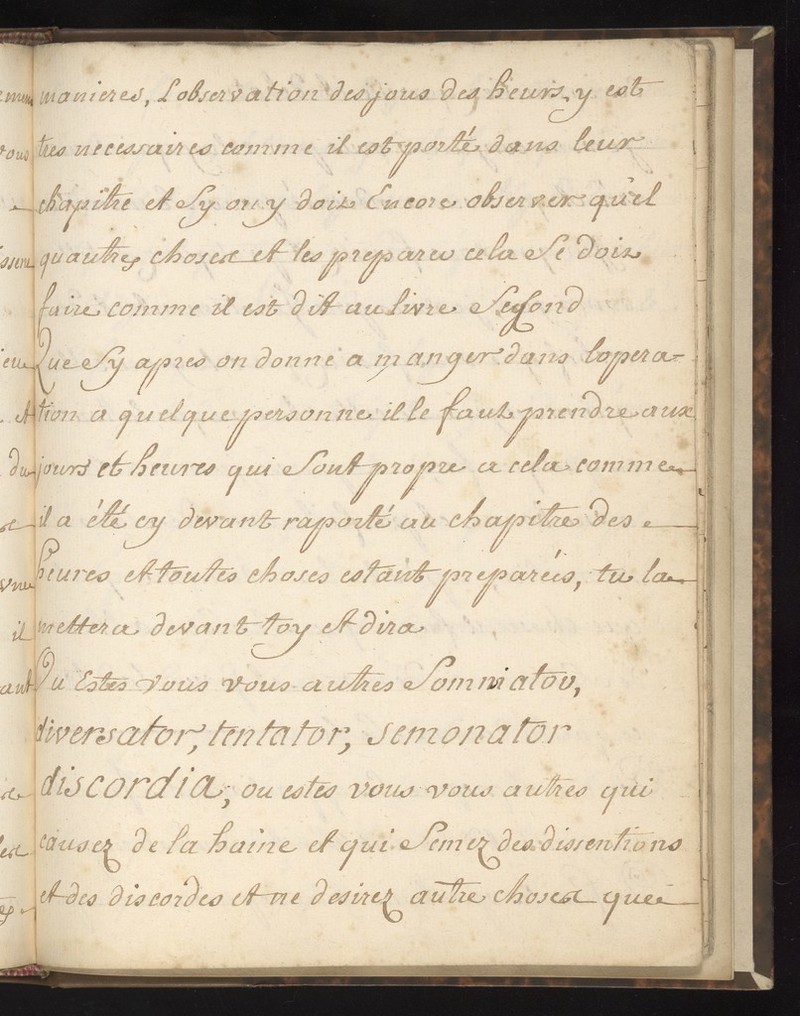 manieres, L'observation des jous des heurs, y est
tres necessaires comme il est porté dans leur
chapitre et Sy on y doit Encore observer qu'el
quautres choses et les preparer cela Se doit
faire comme il est dit au livre Segond
Que Sy apres on donne a manger dans lopera-
tion a quelque personne il le faut prendre aux
jours et heures qui Sont propre a cela comme
il a été cy devant raporté au chapitre des
heures et toutes choses estant preparéés, tu la
mettera devant toy et dira
Ou Estes vous vous autres Somniatov,
diversator, tentator, semonator
discordia, ou estes vous vous autres qui
causez de la haine et qui Semez des dissentions
et des discordes et ne desirez autre choses que